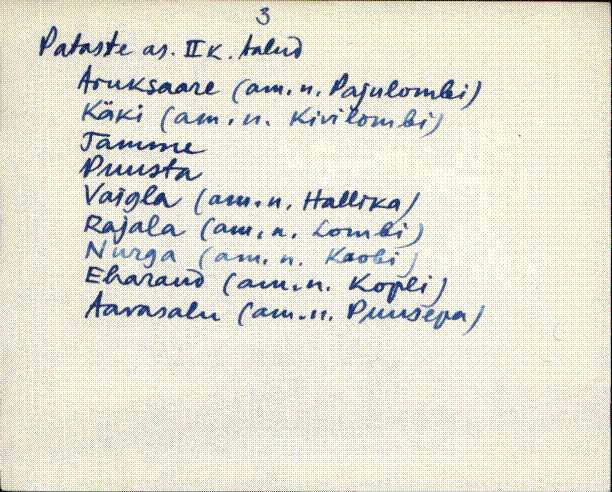 3
Pataste as. II k. talud
Aruksaare (am. n. Pajulombi)
Käki (am. n. Kivilombi)
Tamme
Puusta
Vaigla (am. n. Hallika)
Rajala (am. n. Lombi)
Nurga (am. n. Koobi)
Eharand (am. n. Kopli)
Aavasalu (am. n. Puusepa)